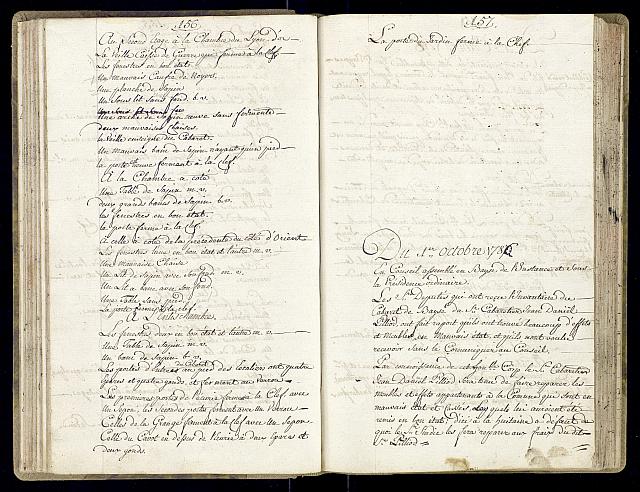 156.
Au Second Etage à la Chambre du Lyon d'or
La Vieille Caisse de Guerre qui ferme à la Clef
Les fenestres en bon état.
Un mauvais Cauffre de Noyer.
Une planche de Sapin
Un Sous lit Sans fond. b. v.
Une arche de Sapin neuve sans fermente
deux mauvaises Chaises.
la Vieille enseigne du Cabaret.
Un mauvais banc de Sapin n'ayant qu'un pied
la porte neuve fermant à la clef.
A la Chambre a coté
Une Table de Sapin m. v.
deux grands bancs de Sapin b. v.
les fenestres en bon état.
la porte ferme à la clef.
A celle à coté de la précédente du coté d'Orient
Les fenestres l'une en bon état et l'autre m. v.
Une mauvaise Chaise
Un Lit de Sapin avec Son fond m. v.
Un Lit a banc avec son fond
Une Table Sans pied.
La porte ferme à la clef.
A l'Antichambre.
Les fenestres l'une en bon état et l'autre m. v.
Une Table de Sapin m. v.
Un banc de Sapin b. v.
Les portes d'entrée du Cabaret au pied des Escaliers ont quatre
épares et quatre gonds, et ferment au Verrou
Les premières portes de l'écurie fermen à la Clef avec
un Lapon, les secondes portes ferment avec un Verrou
Celles de la Grange ferment à la clef avec un Lapon
Celle du Cavot en dessus de l'écurie à deux épares et
deux gonds.
157.
La porte du Jardin ferme à la Clef.
Du 1er octobre 1786
En Conseil assemblé en Bayse de Bustance et sous
la Présidence ordinaire.
Les Srs Députés qui ont reçu l'Inventaire du
Cabaret de Bayse du Sr Cabaretier Jean Daniel
Lilliod ont fait raport qu'ils ont trouvé beaucoup d'effets
et meubles en mauvais état, et qu'ils n'ont voulu
recevoir sans le Communiquer au Conseil.
Par connoissance de cet honble Corps le Sr Cabaretier
Jean Daniel Lilliod sera tenu de faire reparer les
meubles et effets appartenants à la Commune qui sont en
mauvais état et cassés, lesquels lui auroient été
remis en bon état, d'ici à la huitaine à deffaut de
quoi le Sr Sindic les fera reparer aux fraix du dit
Sr Lilliod